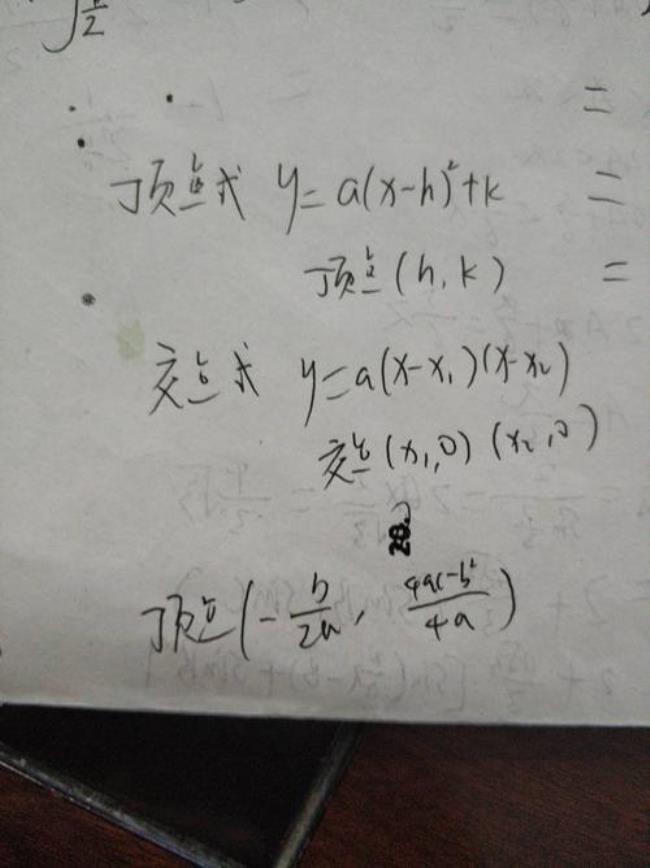 √2
=
顶点式 y=a(x-h)²+k =
顶点(h,k) =
交点式 y=a(x-x₁)(x-x₂)
交点(x₁,0)(x₂,0)
顶点(-b/2a, 4ac-b²/4a)